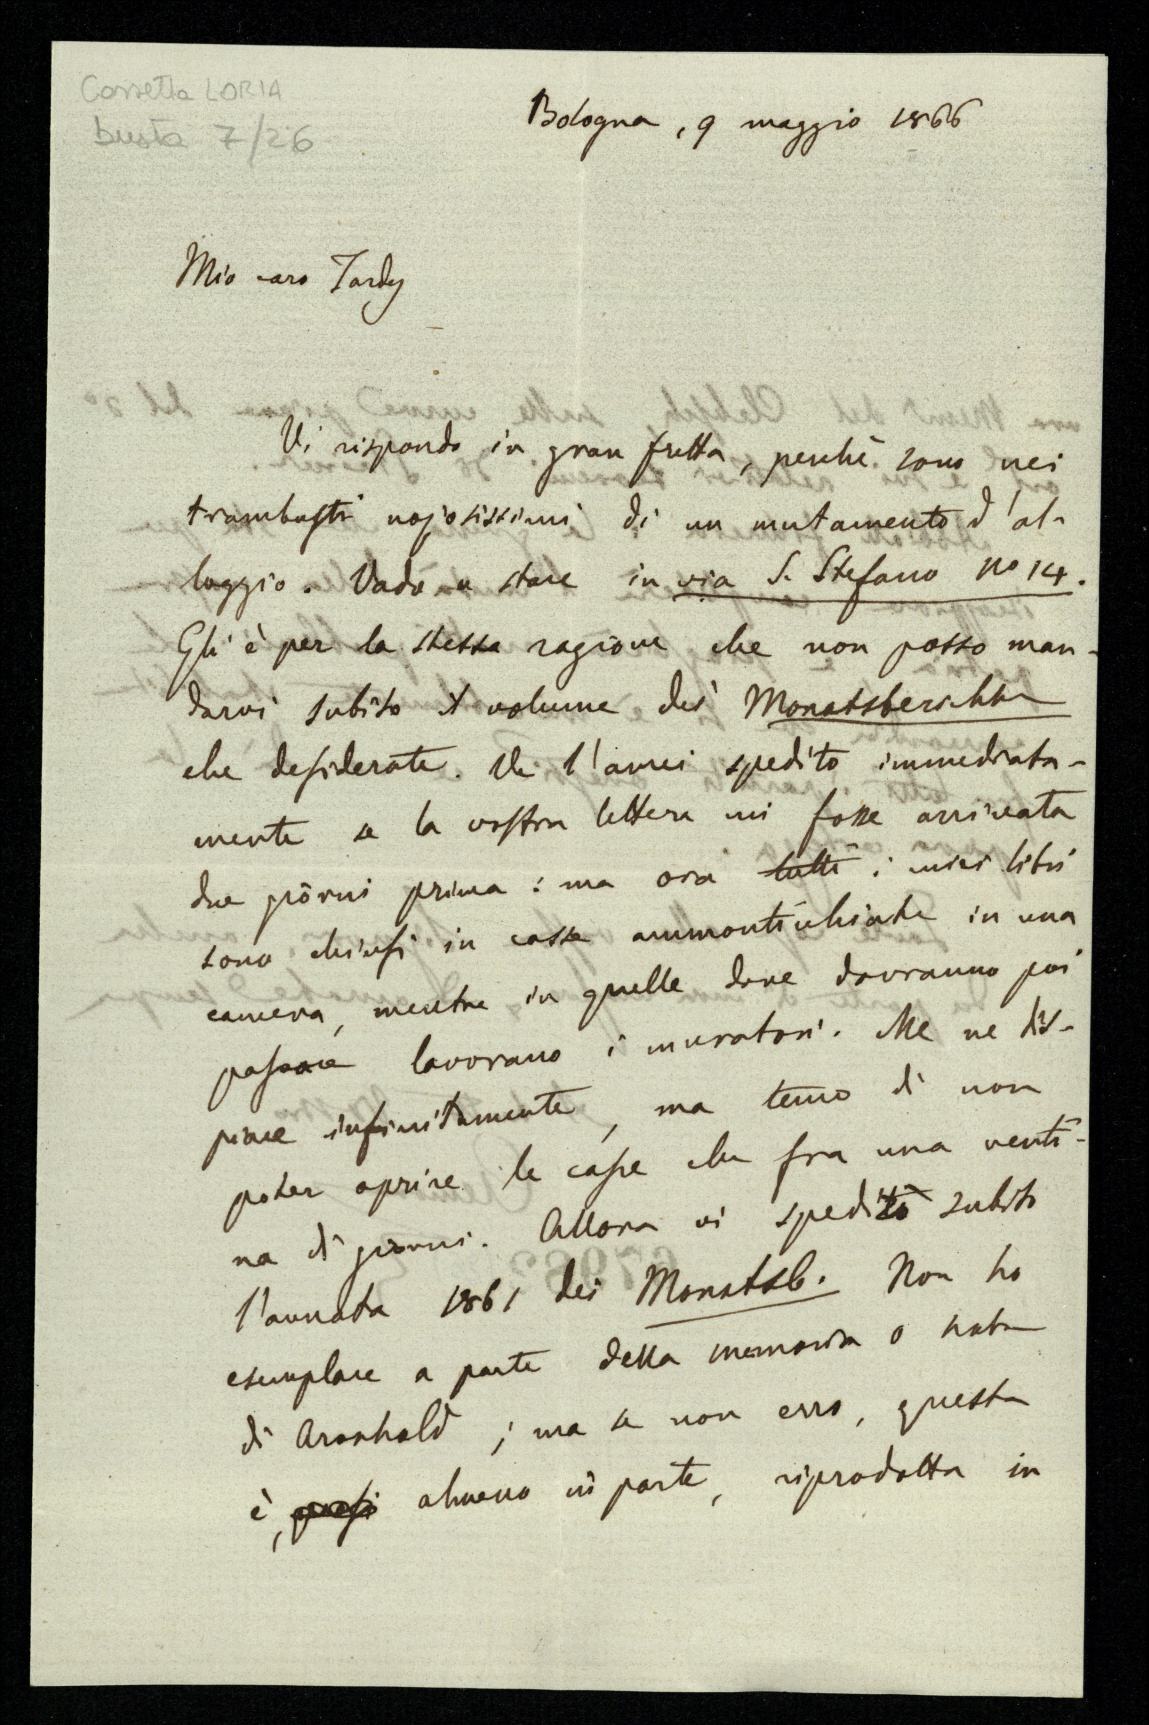 Cassetta LORIA
busta 7/26
Bologna, 9 maggio 1866
Mio caro Tardy
Vi rispondo in gran fretta, perchè sono nei
trambusti nojosissimi di un mutamento d'al-
loggio. Vado a stare in via S. Stefano nº 14.
Gli è per la stessa ragione che non posso man-
darvi subito il volume dei Monatsberichte
che desiderate. Ve l'avrei spedito immediata-
mente se la vostra lettera mi fosse arrivata
due giorni prima: ma ora tutti i miei libri
sono chiusi in casse ammonticchiate in una
camera, mentre in quelle dove dovranno poi
passare lavorano i muratori. Me ne dis-
piace infinitamente, ma temo di non
poter aprire le casse che fra una venti-
na di giorni. Allora vi spedirò subito
l'annata 1861 dei Monatsb. Non ho
esemplare a parte della memoria o nota
di Aronhold; ma se non erro, questa
è, quasi almeno in parte, riprodotta in